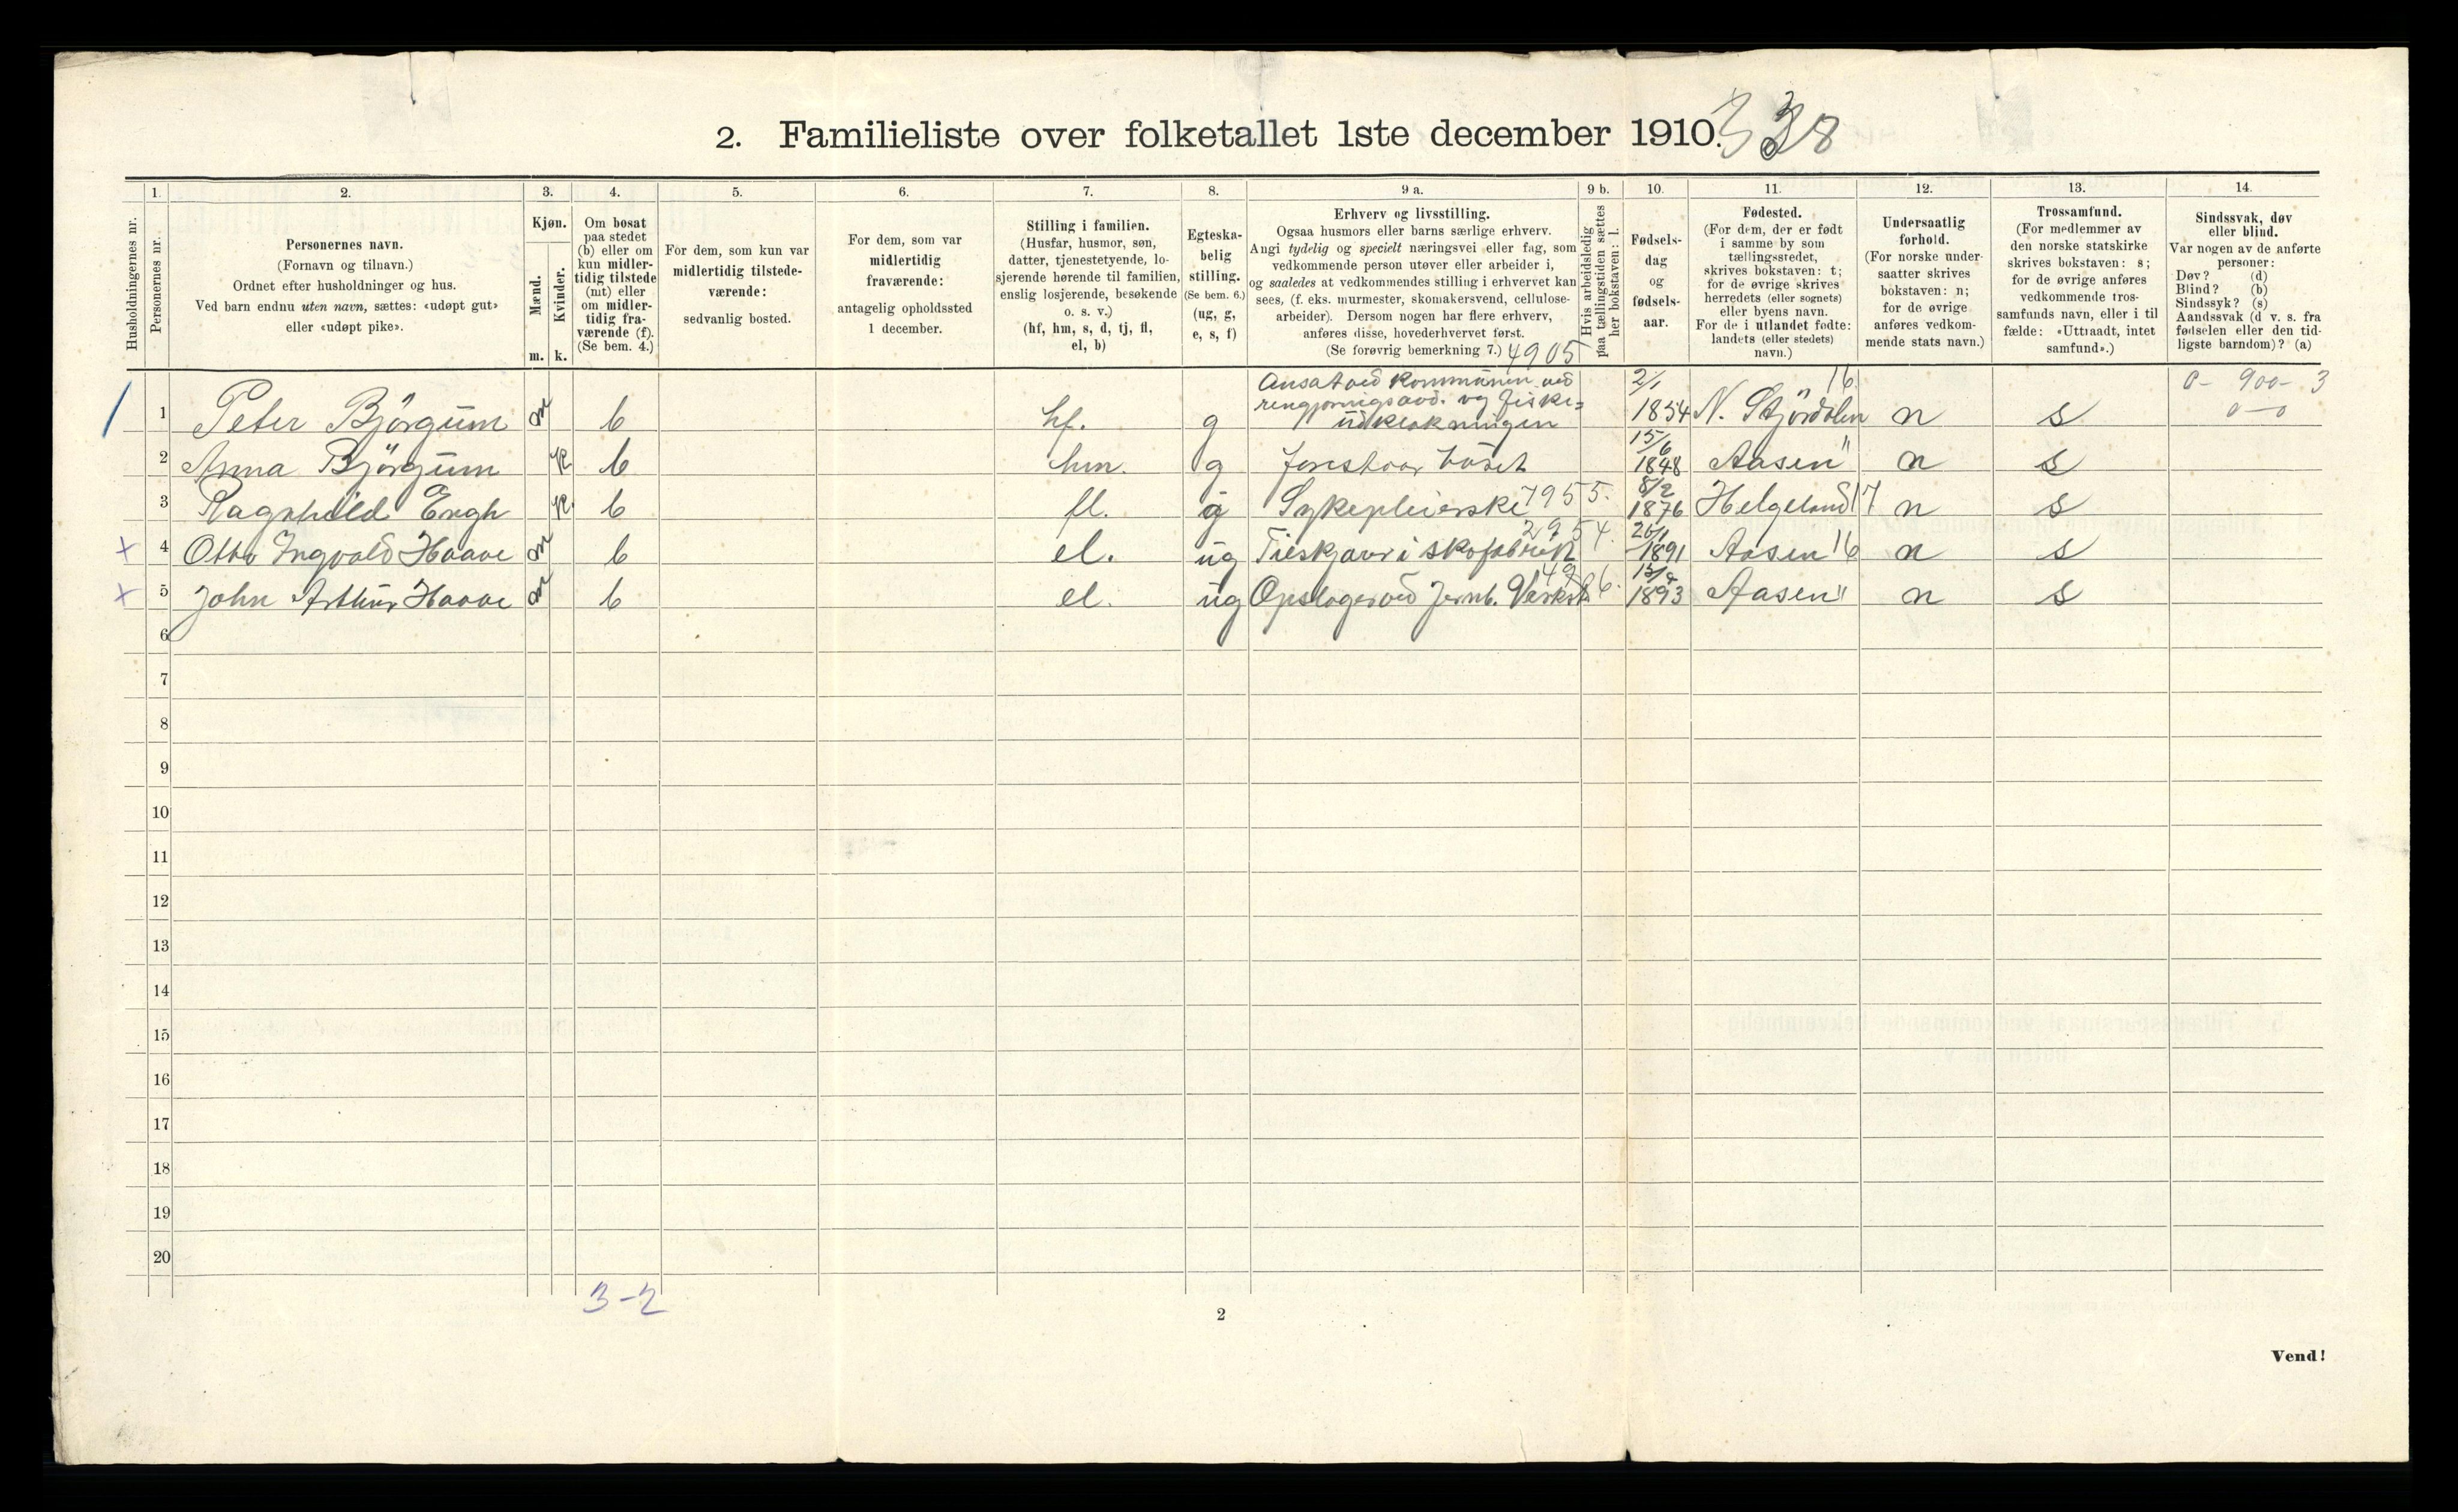 2. Familieliste over folketallet 1ste december 1910.
338
1. 2. 3. 4. 5. 6. 7. 8. 9 a. 9 b. 10. 11. 12. 13. 14.
Husholdningernes nr.
Personernes nr.
Personernes navn.
(Fornavn og tilnavn.)
Ordnet efter husholdninger og hus.
Ved barn endnu uten navn, sættes: «udøpt gut»
eller «udøpt pike».
Kjøn.
Mænd.
Kvinder.
m. k.
Om bosat
paa stedet
(b) eller om
kun midler-
tidig tilstede
(mt) eller
om midler-
tidig fra-
værende (f).
(Se bem. 4.)
For dem, som kun var
midlertidig tilstede-
værende:
sedvanlig bosted.
For dem, som var
midlertidig
fraværende:
antagelig opholdssted
1 december.
Stilling i familien.
(Husfar, husmor, søn,
datter, tjenestetyende, lo-
sjerende hørende til familien,
enslig losjerende, besøkende
o. s. v.)
(hf, hm, s, d, tj, fl,
el, b)
Egteska-
belig
stilling.
(Se bem. 6.)
(ug, g,
e, s, f)
Erhverv og livsstilling.
Ogsaa husmors eller barns særlige erhverv.
Angi tydelig og specielt næringsvei eller fag, som
vedkommende person utøver eller arbeider i,
og saaledes at vedkommendes stilling i erhvervet kan
sees, (f. eks. murmester, skomakersvend, cellulose-
arbeider). Dersom nogen har flere erhverv,
anføres disse, hovederhvervet først.
(Se forøvrig bemerkning 7.) 4905
Hvis arbeidsledig
paa tællingstiden sættes
her bokstaven: l.
Fødsels-
dag
og
fødsels-
aar.
Fødested.
(For dem, der er født
i samme by som
tællingsstedet,
skrives bokstaven: t;
for de øvrige skrives
herredets (eller sognets)
eller byens navn.
For de i utlandet fødte:
landets (eller stedets)
navn.)
Undersaatlig
forhold.
(For norske under-
saatter skrives
bokstaven: n;
for de øvrige
anføres vedkom-
mende stats navn.)
Trossamfund.
(For medlemmer av
den norske statskirke
skrives bokstaven: s;
for de øvrige anføres
vedkommende tros-
samfunds navn, eller i til
fælde: «Uttraadt, intet
samfund».)
Sindssvak, døv
eller blind.
Var nogen av de anførte
personer:
Døv? (d)
Blind? (b)
Sindssyk? (s)
Aandssvak (d v. s. fra
fødselen eller den tid-
ligste barndom)? (a)
Ansat ved kommunen ved 2/1 16 0- 900- 3
rengjørnigsavd. og fiske=
1 Peter Björgum m b hf. g udklækningen 1854 N. Stjördalen n s 0-0
15/6
2 Anna Björgum k b hm. g forestaar huset 1848 Aasen " n s
8/2
3 Ragnhild Engh k b fl. g Sykepleierske 7955. 1876 Helgeland 17 n s
4 Otto Ingvald Haave m b el. ug Tilskjærer i skofabrik 2954. 1891 Aasen 16 n s
5 John Arthur Haave m b el. ug Opslager ved Jernb. Verkst. 1893 Aasen " n s
6
7
8
9
10
11
12
13
14
15
16
17
18
19
20
3-2
2
Vend!